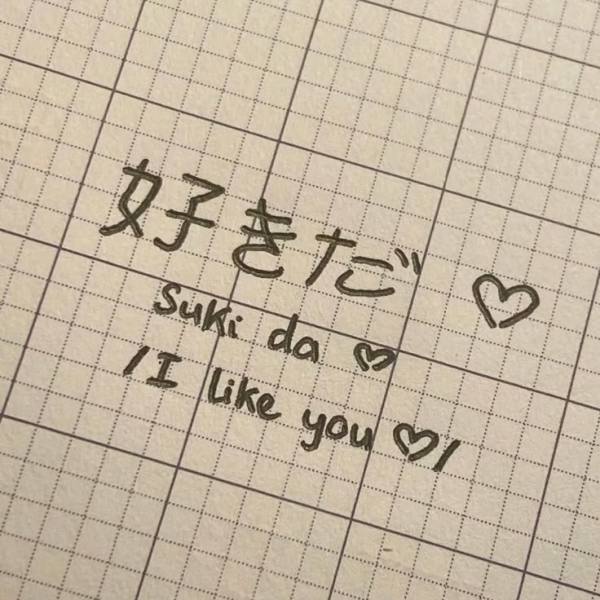 好きだ ♡
Suki da ♡
/I like you ♡/